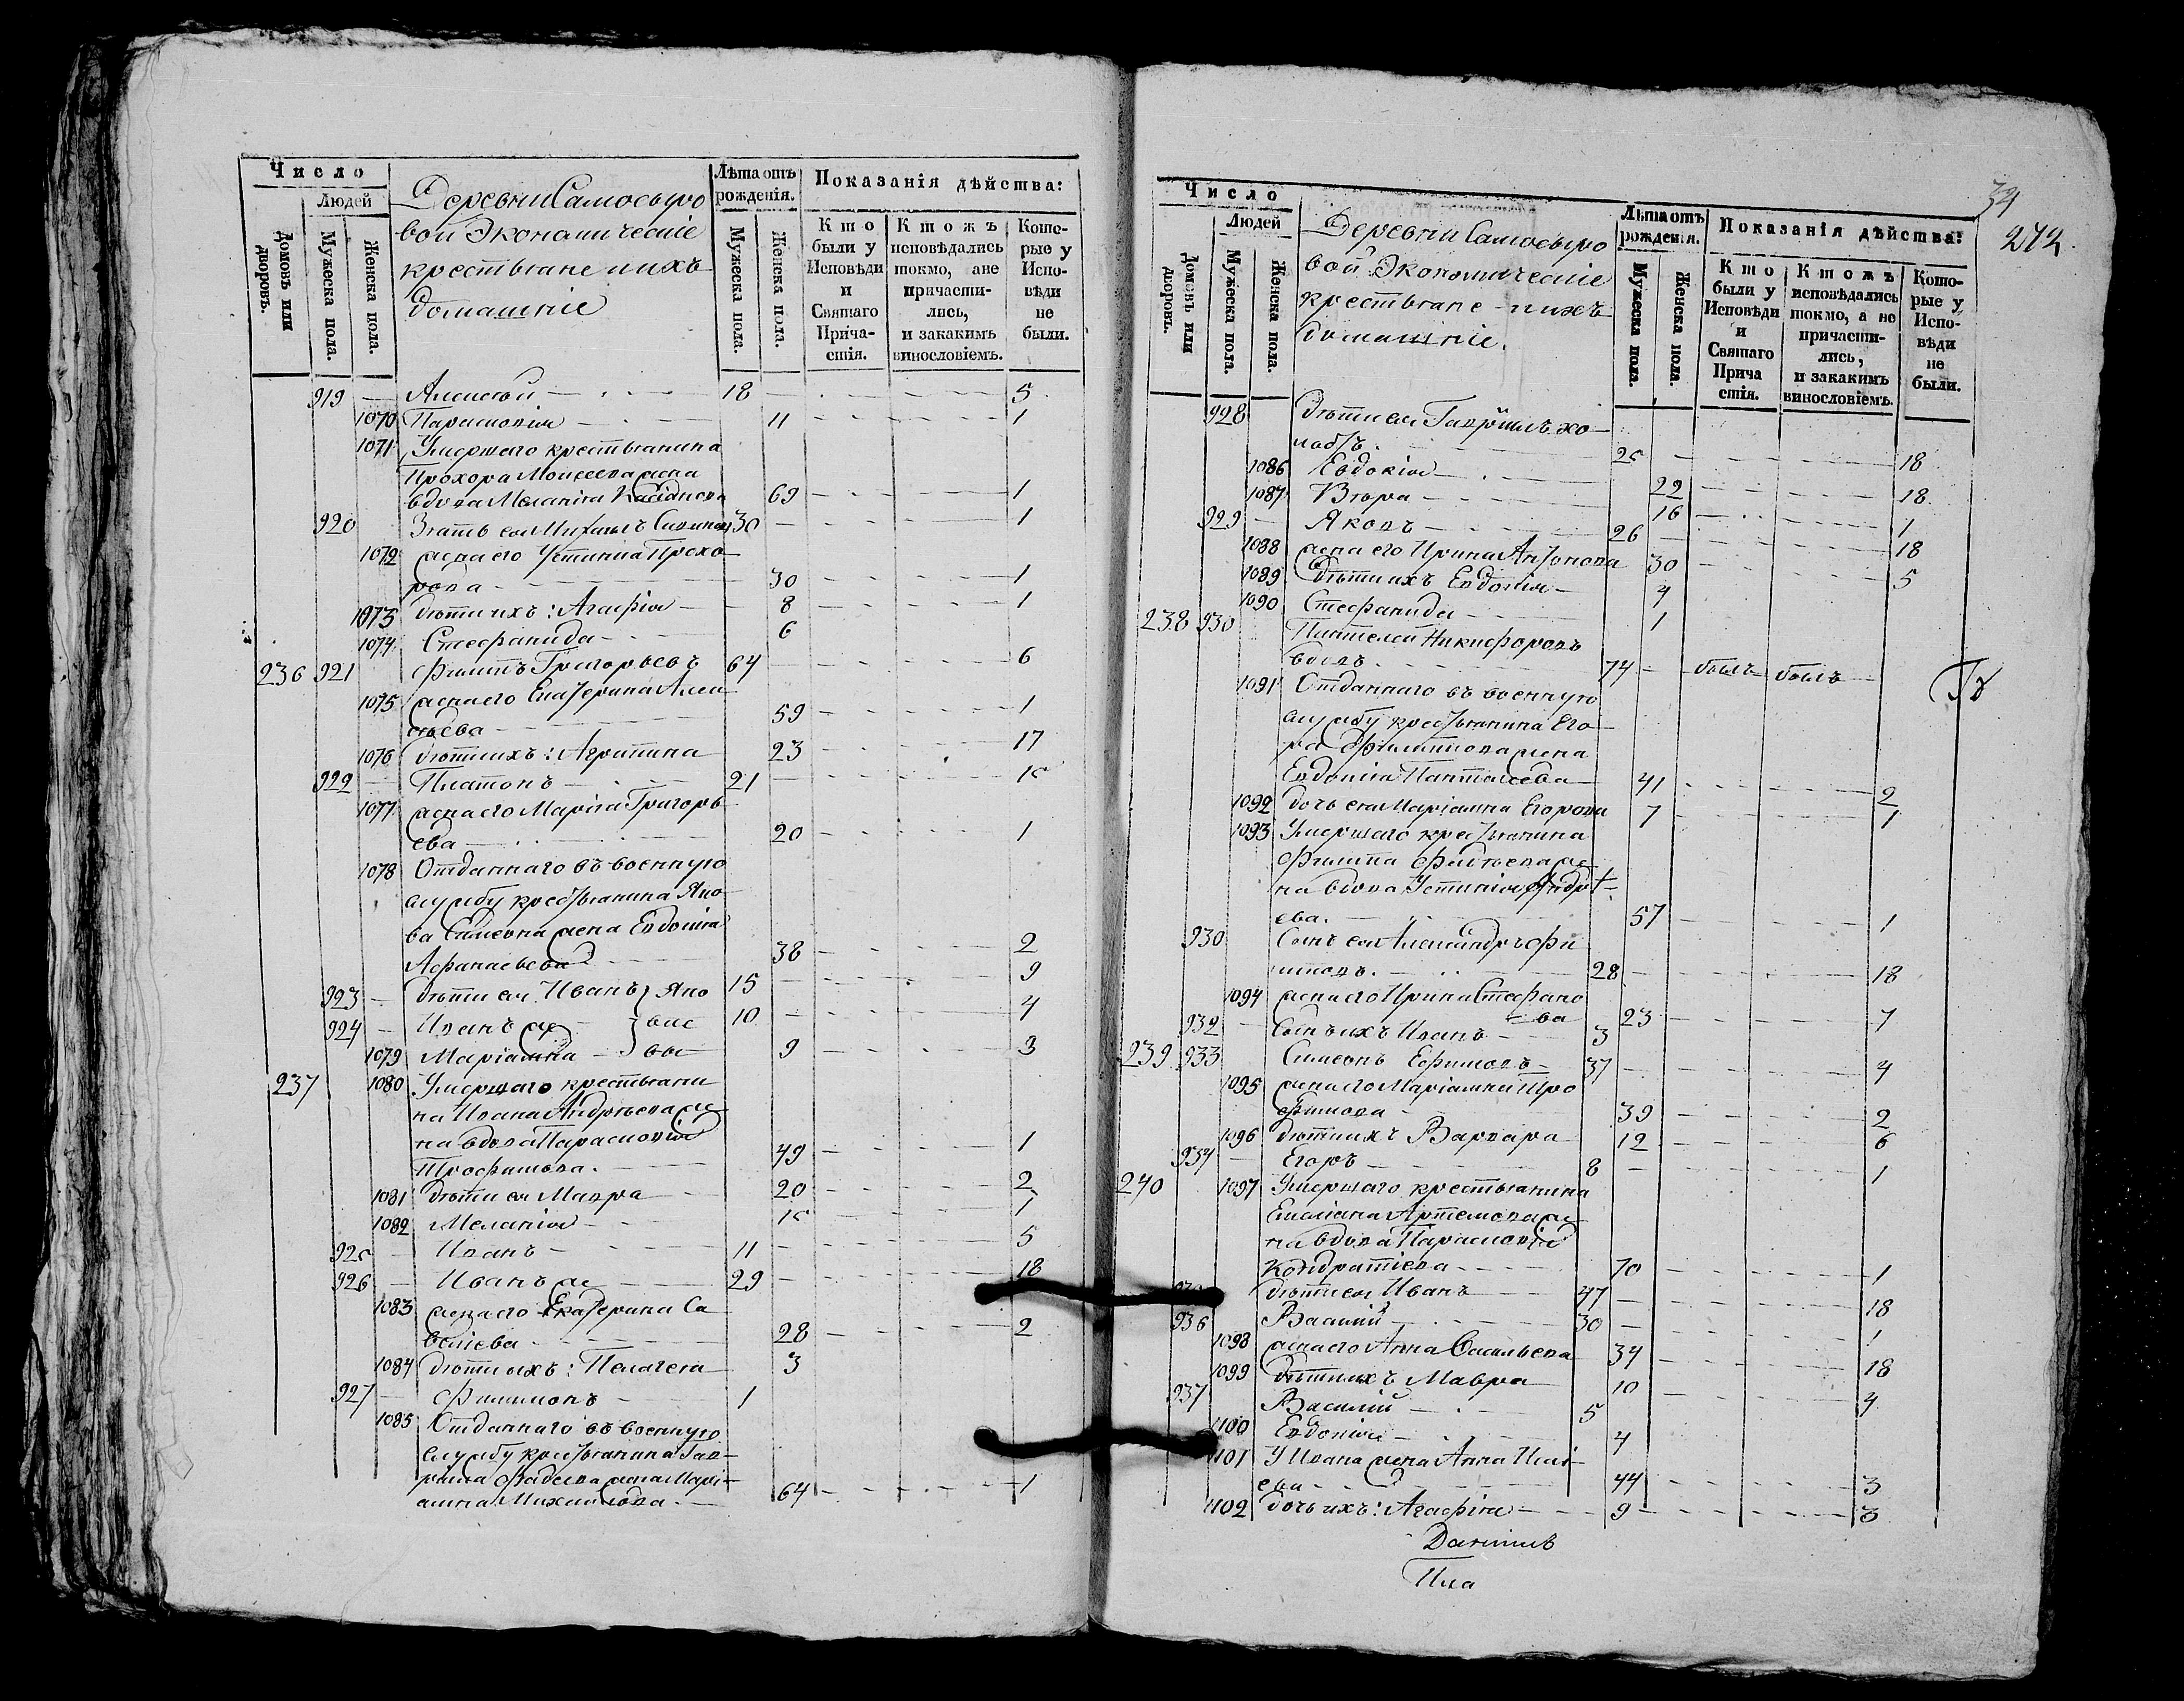 Число
Людей
Домовъ или дворовъ.
Мужеска пола.
Женска пола.
Деревни Самосыро
вой Экономическіе
крестьяне и ихъ
домашніе
Лѣта отъ рожденія.
Мужеска пола.
Женска пола.
Показанія дѣйства:
Кто были у Исповѣди и Святаго Причастія.
Ктожъ исповѣдались токмо, а не причастились, и закакимъ винословіемъ.
Которые у Исповѣди не были.
919 — Алексѣй — 18 — 5
1070 Парасковія — 11 — 1
1071 Умершаго крестьянина
Прохора Моисеева жена
вдова Меланія Касіанова 69 — 1
920 Зять ея Михаилъ 30 — 1
1072 жена его Устинia Прохо
рова — 30 — 1
1073 дѣти ихъ: Агафія — 8 — 1
1074 Стефанида — 6
236 921 Филипъ Григорьевъ 64 — 6
1075 жена его Екатерина Алек
сѣева — 59 — 1
1076 дѣти ихъ: Агрипина 23 — 17
922 — Платонъ — 21 — 15
1077 жена его Марія Григорь
ева — 20 — 1
1078 Отданнаго въ военную
службу крестьянина Яко
ва Симеона жена Евдокія
Афанасьева — 38 — 2
923 — дѣти ея Иванъ } Яко 15 — 9
924 — Иванъ же } вле 10 — 4
1079 Маріамна — } вы 9 — 3
237 1080 Умершаго крестьяни
на Ивана Андрѣева же
на вдова Парасковія
Трофимова. — 49 — 1
1081 дѣти ея Мавра — 20 — 2
1082 Меланія — 15 — 1
925 — Иванъ — 11 — 5
926 — Иванъ же — 29 — 18
1083 жена его Екатерина Са
веліева — 28 — 2
1084 дѣти ихъ: Пелагея 3
927 — Филимонъ — 1
1085 Отданнаго въ военную
службу крестьянина Гав
рила Фадеева жена Марі
амна Михаилова. — 64 — 1
34
272.
Число
Людей
Домовъ или дворовъ.
Мужеска пола.
Женска пола.
Деревни Самосыро
вой Экономическіе
крестьяне и ихъ
домашніе.
Лѣта отъ рожденія.
Мужеска пола.
Женска пола.
Показанія дѣйства:
Кто были у Исповѣди и Святаго Причастія.
Ктожъ исповѣдались токмо, а не причастились, и закакимъ винословіемъ.
Которые у Исповѣди не были.
928 дѣти ея Гавріилъ хо
лостъ. — 25 — 18
1086 Евдокія — 22 — 18
1087 Вѣра — 16 — 1
929 — Яковъ — 26 — 18
1088 жена его Ирина Антонова 30 — 5
1089 дѣти ихъ Евдокія — 4
1090 Стефанида — 1
238 930 Пантелей Никифоровъ
вдовъ. — 74 — былъ былъ
1091 Отданнаго въ военную
службу крестьянина Его
ра Филиппова жена
Евдокія Пантелеева — 41 — 2
1092 дочь ея Маріамна Егорова 7 — 1
1093 Умершаго крестьянина
Филипа Фадѣева же
на вдова Устинія Андрѣ
ева. — 57 — 1
930 Сынъ ея Александръ Фи
липовъ. — 28 — 18
1094 жена его Ирина Стефано
ва 23 — 7
932 — Сынъ ихъ Иванъ — 3
239 933 Симеонъ Ефимовъ — 37 — 4
1095 жена его Маріамна Про
фимова — 39 — 2
1096 дѣти ихъ Варвара 12 — 6
934 — Егоръ — 8 — 1
240 1097 Умершаго крестьянина
Емеліана Артемова же
на вдова Парасковія
Кондратіева — 70 — 1
дѣти ея Иванъ — 47 — 18
936 Василій — 30 — 1
1098 жена его Анна Васильева 34 — 18
1099 дѣти ихъ Мавра 10 — 4
937 Василій — 5
1100 Евдокія — 4
1101 У Ивана жена Анна Илі
ева — 44 — 3
1102 дочь ихъ: Агафія — 9 — 3